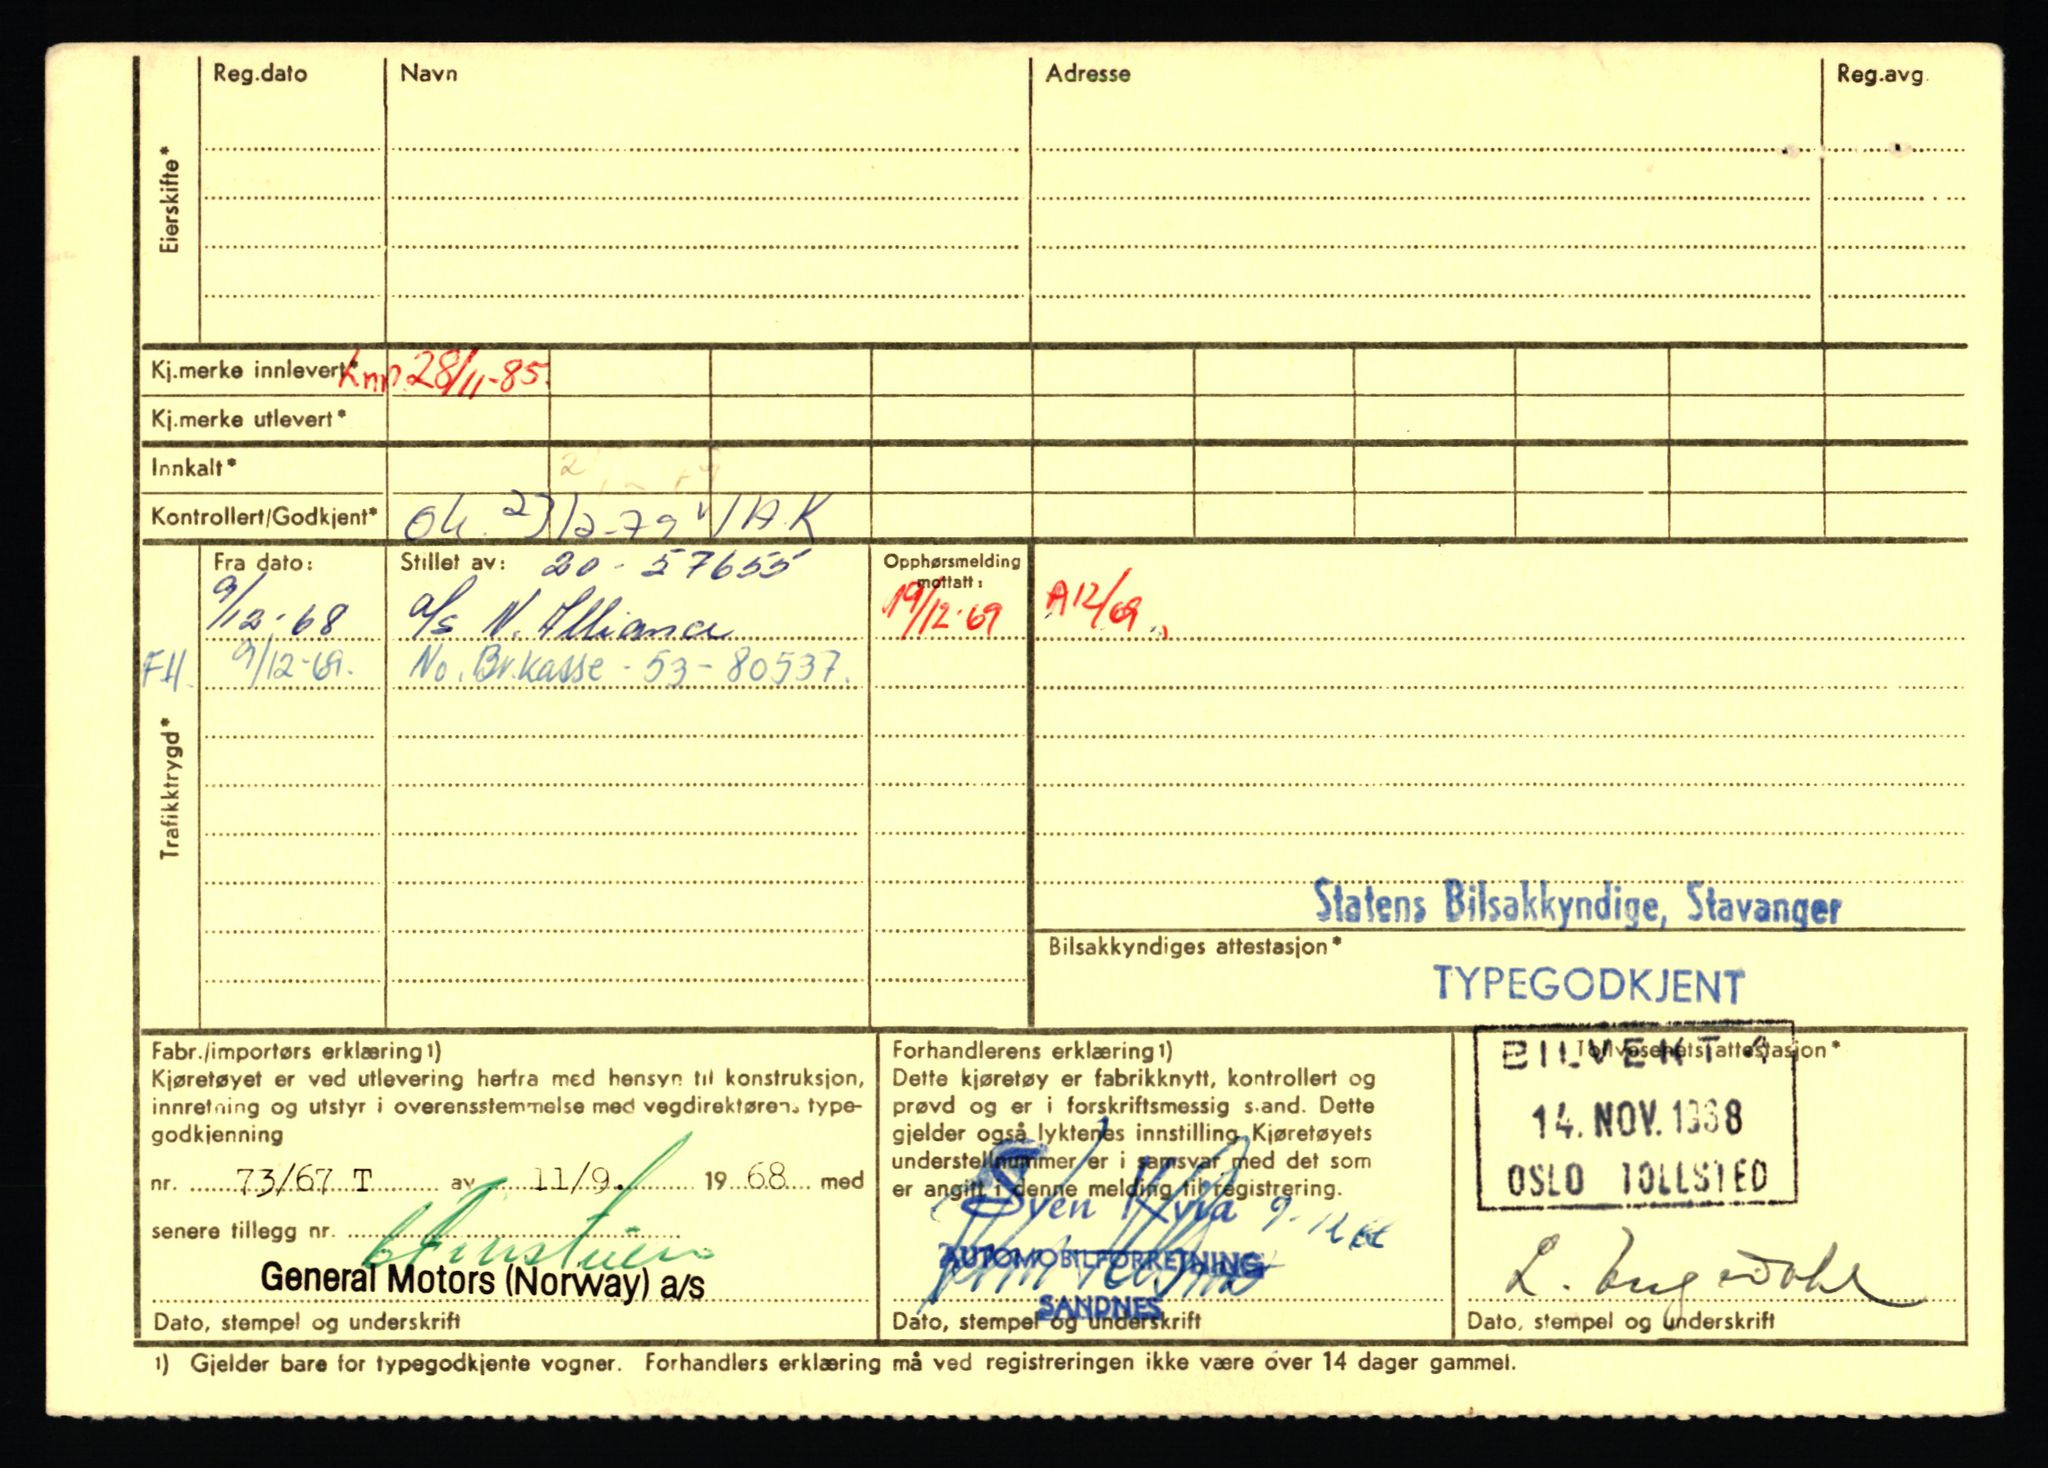 Reg.dato Navn Adresse Reg.avg.
Eierskifte*
Kj.merke innlevert* Inn. 28/11-85.
Kj.merke utlevert*
Innkalt*
Kontrollert/Godkjent* Ok. 27/12-79 A.K
Fra dato: Stillet av: 20-57655 Opphørsmelding
mottatt:
9/12-68 a/s N. Alliance 19/12-69 A12/69
FH. 9/12-69. No. Br.kasse - 53-80537.
Trafikktrygd*
Statens Bilsakkyndige, Stavanger
Bilsakkyndiges attestasjon*
TYPEGODKJENT
Fabr./importørs erklæring 1)
Kjøretøyet er ved utlevering herfra med hensyn til konstruksjon,
innretning og utstyr i overensstemmelse med vegdirektørens type-
godkjenning
nr. 73/67 T av 11/9. 19 68 med
senere tillegg nr.
General Motors (Norway) a/s
Dato, stempel og underskrift
Forhandlerens erklæring 1)
Dette kjøretøy er fabrikknytt, kontrollert og
prøvd og er i forskriftsmessig stand. Dette
gjelder også lyktenes innstilling. Kjøretøyets
understellnummer er i samsvar med det som
er angitt i denne melding til registrering.
Sven Kvia 9-12-68
AUTOMOBILFORRETNING
SANDNES
Dato, stempel og underskrift
Tollvesenets attestasjon*
BILVEKT A
14. NOV. 1968
OSLO TOLLSTED
L. Engedahl
Dato, stempel og underskrift
1) Gjelder bare for typegodkjente vogner. Forhandlers erklæring må ved registreringen ikke være over 14 dager gammel.